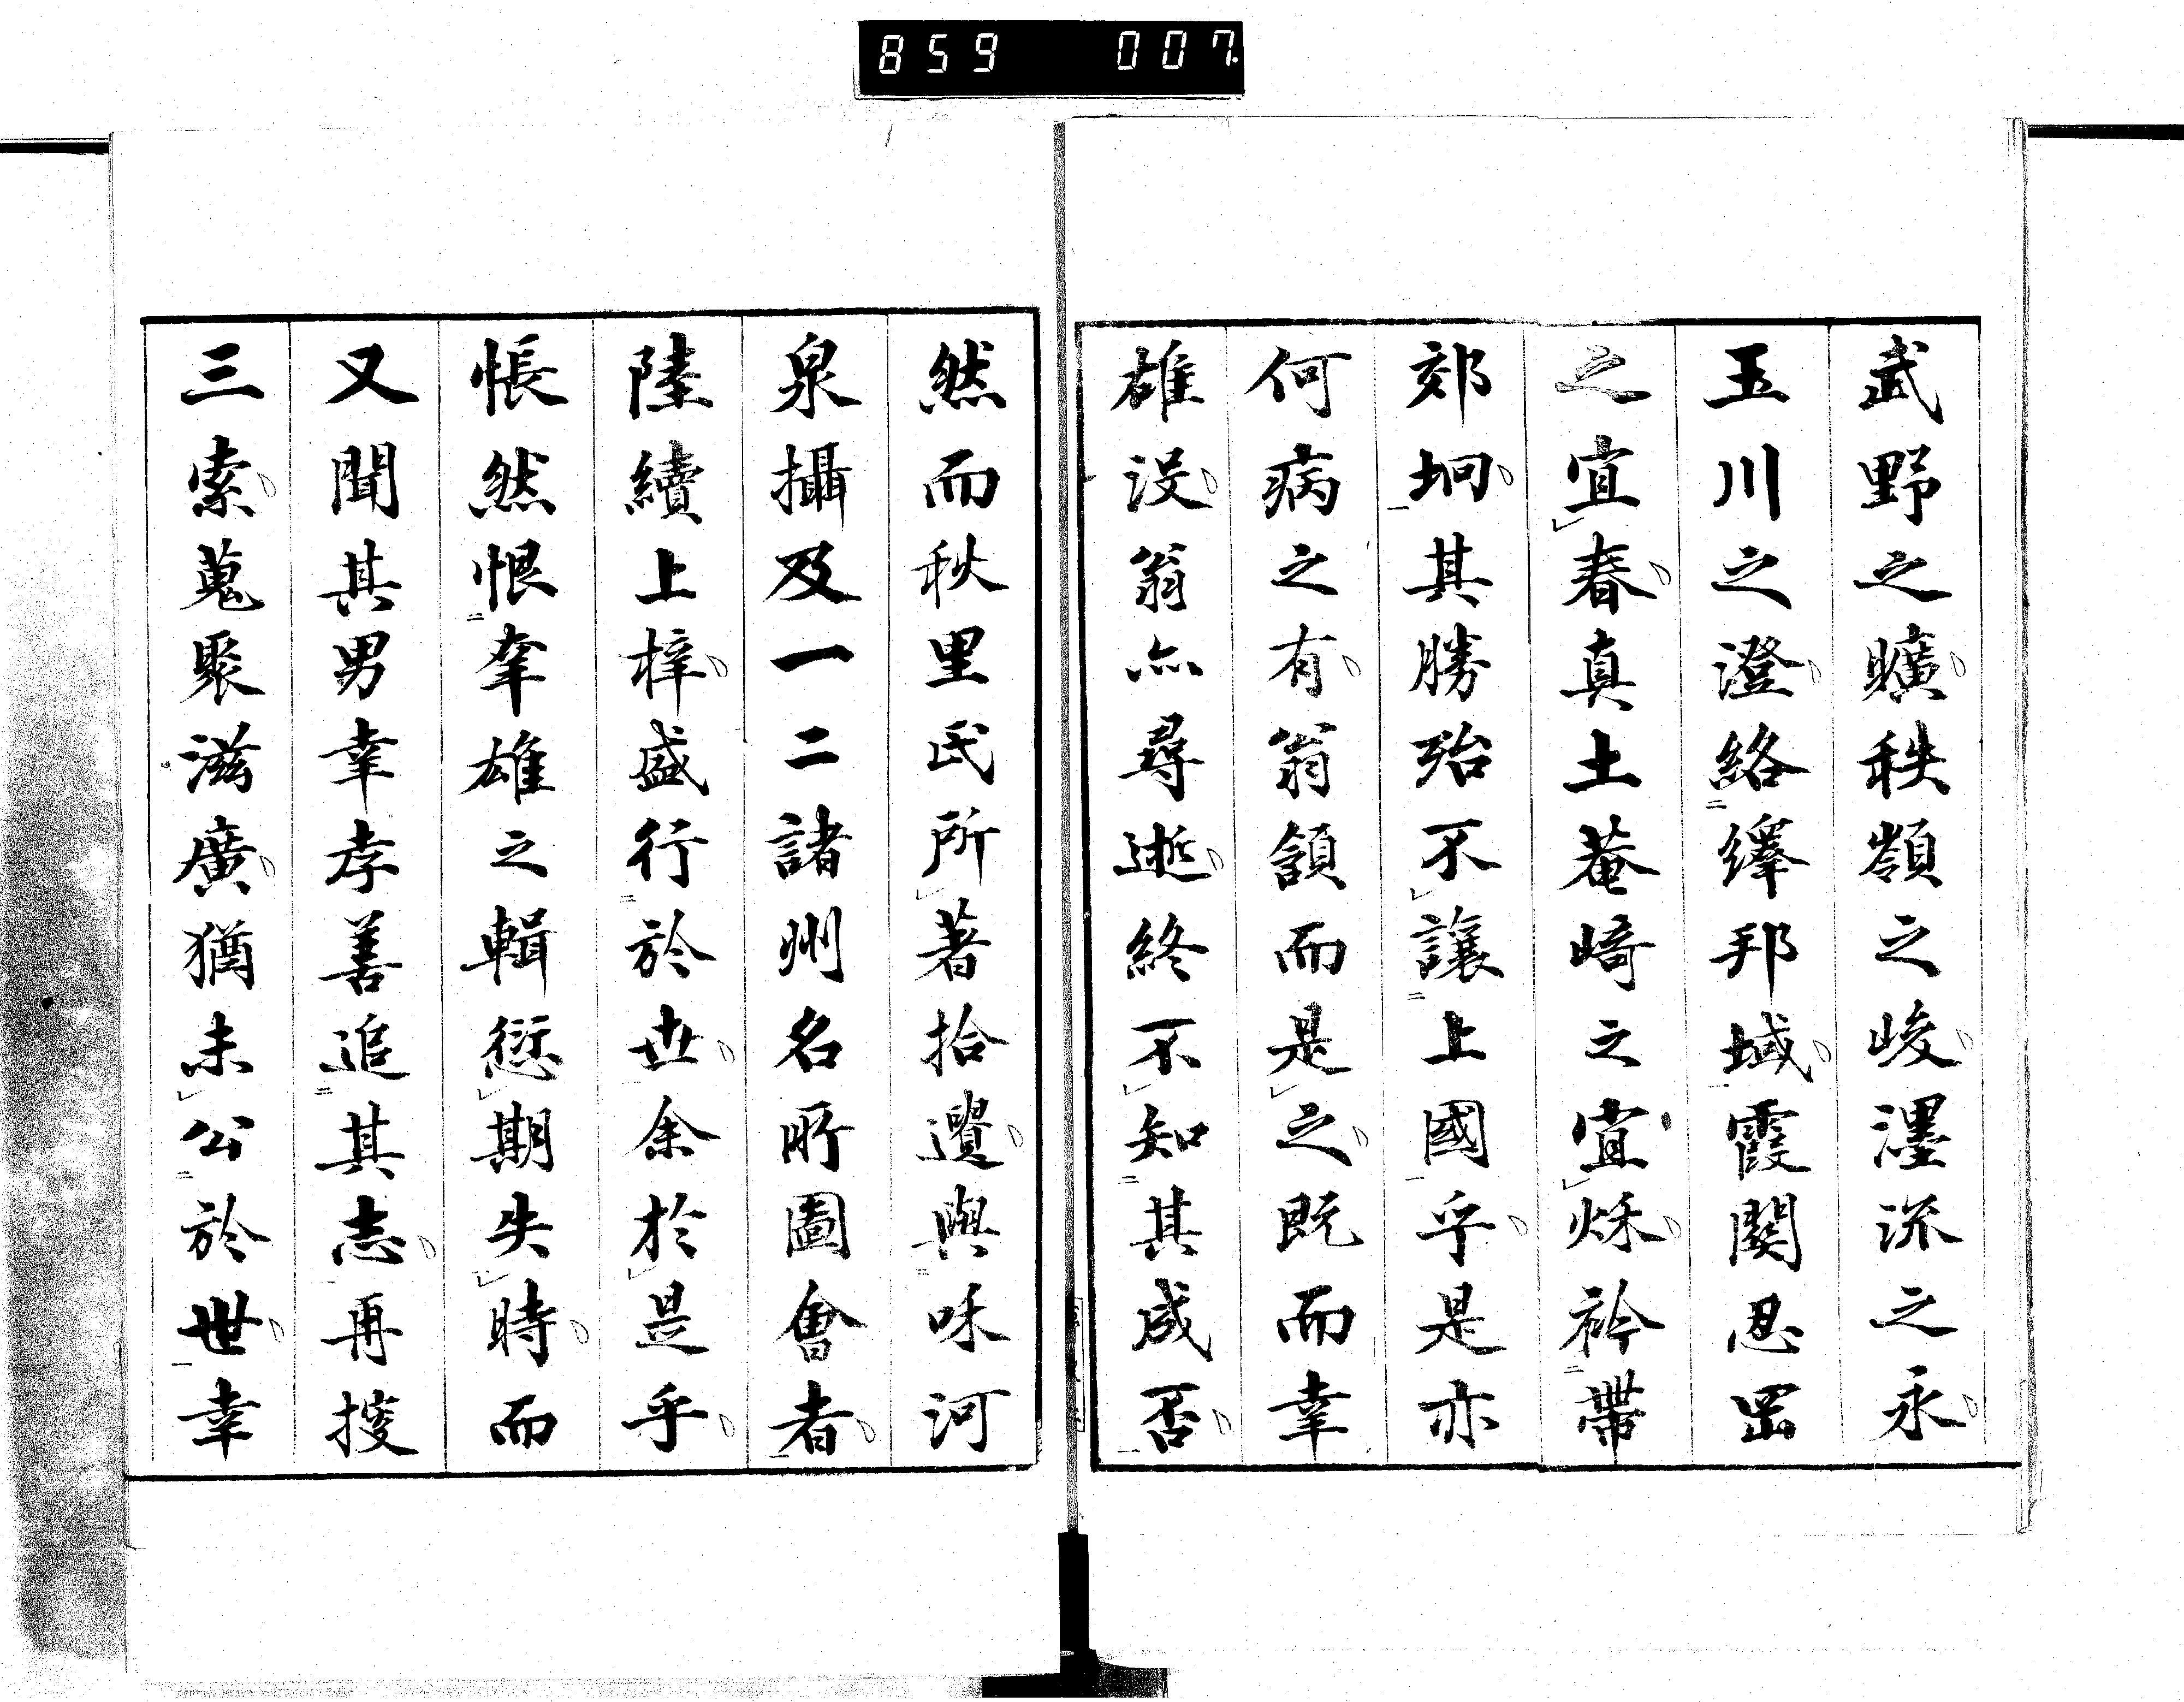 859 007
武野之曠秩嶺之峻濹流之永
玉川之澄絡繹邦城霞関忍岡
之宜春真土菴崎之宜秌衿帶
郊坰其勝殆不讓上國乎是亦
何病之有翁頷而是之既而幸
雄没翁亦尋逝終不知其成否
然而秋里氏所著拾遺與咊河
泉攝及一二諸州名所圖會者
陸續上梓盛行於世余於是乎
悵然恨幸雄之輯愆期失時而
又聞其男幸孝善追其志再搜
三索蒐聚滋廣猶未公於世幸